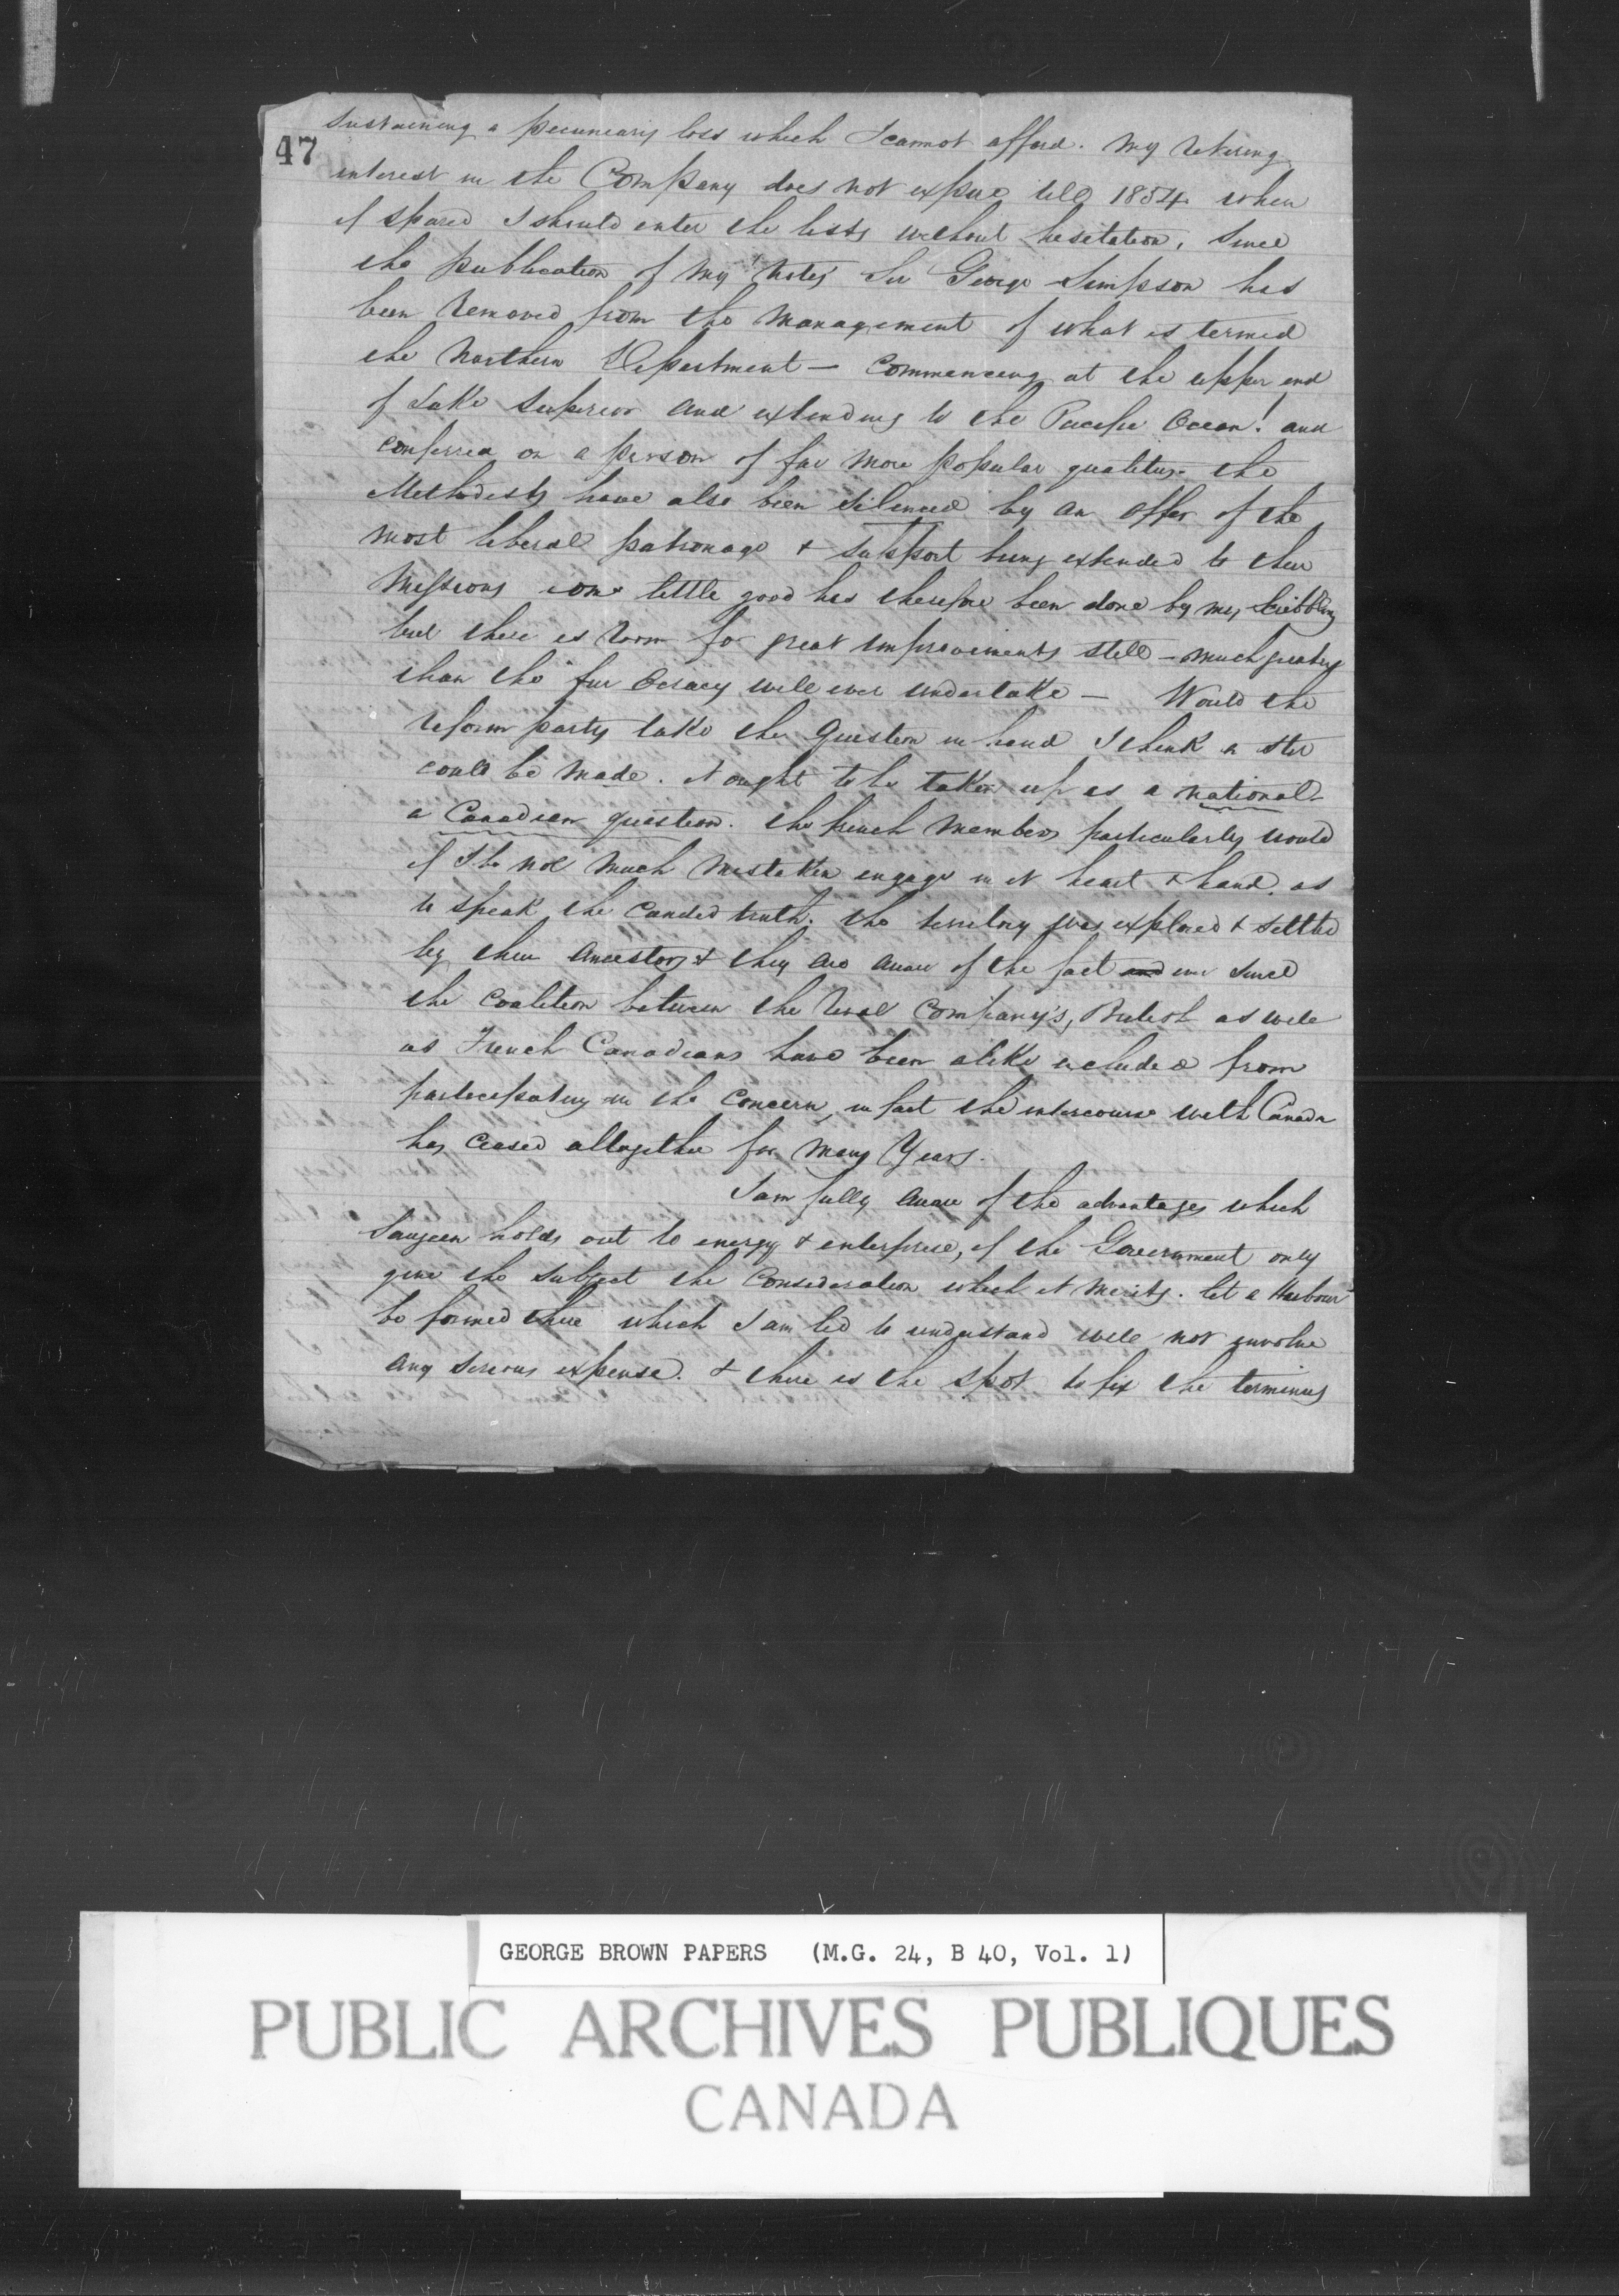 47
sustaining a pecuniary loss which I cannot afford. My retiring
interest in the Company does not expire till 1854 when
if spared I should enter the lists without hesitation. Since
the publication of my "Notes" Sir George Simpson has
been removed from the management of what is termed
the Northern Department — Commencing at the upper end
of Lake Superior and extending to the Pacific Ocean! and
conferred on a person of far more popular qualities. the
Methodists have also been silenced by an offer of the
most liberal patronage & support being extended to their
Missions some little good has therefore been done by my scribbling
but there is room for great improvements still — much greater
than the fur ocracy will ever undertake — Would the
reform party take the question in hand I think a stir
could be made. It ought to be taken up as a national
a Canadian question. the french Members particularly would
if I be not much mistaken engage in it heart & hand. as
to speak the candid truth. the territory was explored & settled
by their Ancestors & they are aware of the fact and ever since
the coalition between the rival Company's, British as well
as French Canadians have been alike excluded from
participating in the concern, in fact the intercourse with Canada
has ceased altogether for many Years.
I am fully aware of the advantages which
Saugeen holds out to energy & enterprise, if the Government only
give the subject the consideration which it merits. let a Harbour
be formed there which I am led to understand will not involve
any serious expense. & there is the spot to fix the terminus
GEORGE BROWN PAPERS (M.G. 24, B 40, Vol. 1)
PUBLIC ARCHIVES PUBLIQUES
CANADA